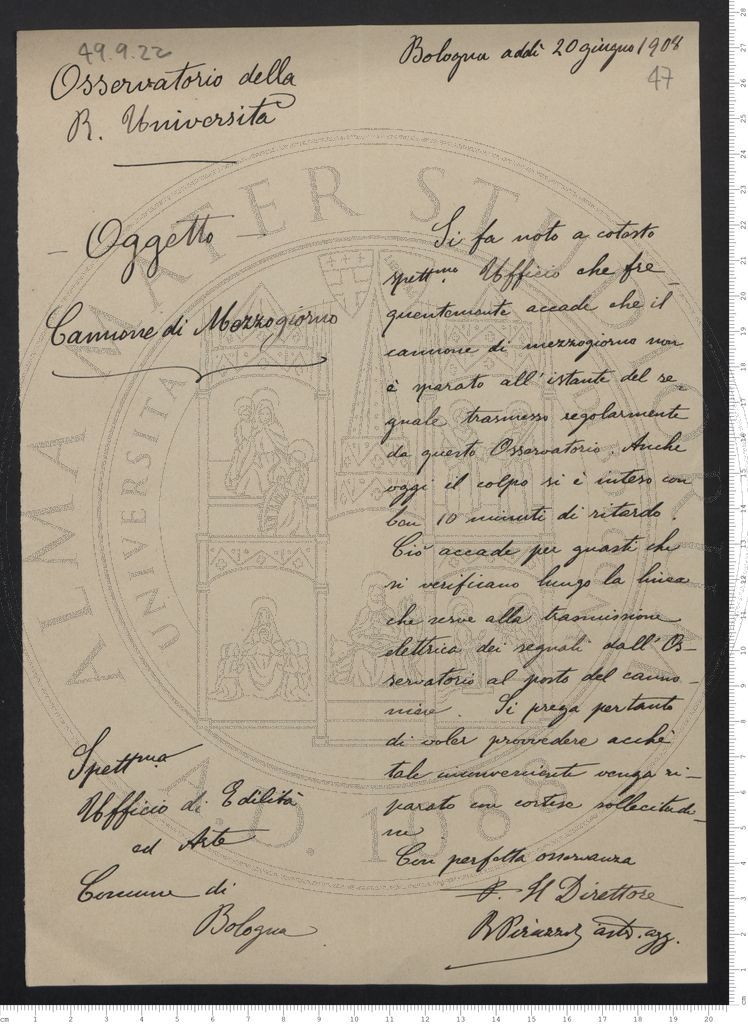 49.9.22
Bologna addì 20 giugno 1908
47
Osservatorio della
R. Università
- Oggetto -
Cannone di Mezzogiorno
Si fa noto a cotesto
spett.mo Ufficio che fre-
quentemente accade che il
cannone di mezzogiorno non
è sparato all'istante del se-
gnale trasmesso regolarmente
da questo Osservatorio. Anche
oggi il colpo si è inteso con
ben 10 minuti di ritardo.
Ciò accade per guasti che
si verificano lungo la linea
che serve alla trasmissione
elettrica dei segnali dall'Os-
servatorio al posto del canno-
niere. Si prega pertanto
di voler provvedere acchè
tale inconveniente venga ri-
parato con cortese sollecitudi-
ne.
Con perfetta osservanza
P. Il Direttore
astr. agg.
Spett.mo
Ufficio di Edilità
ed Arte
Comune di
Bologna
ALMA MATER STUDIORUM
UNIVERSITÀ
A.D. 1088